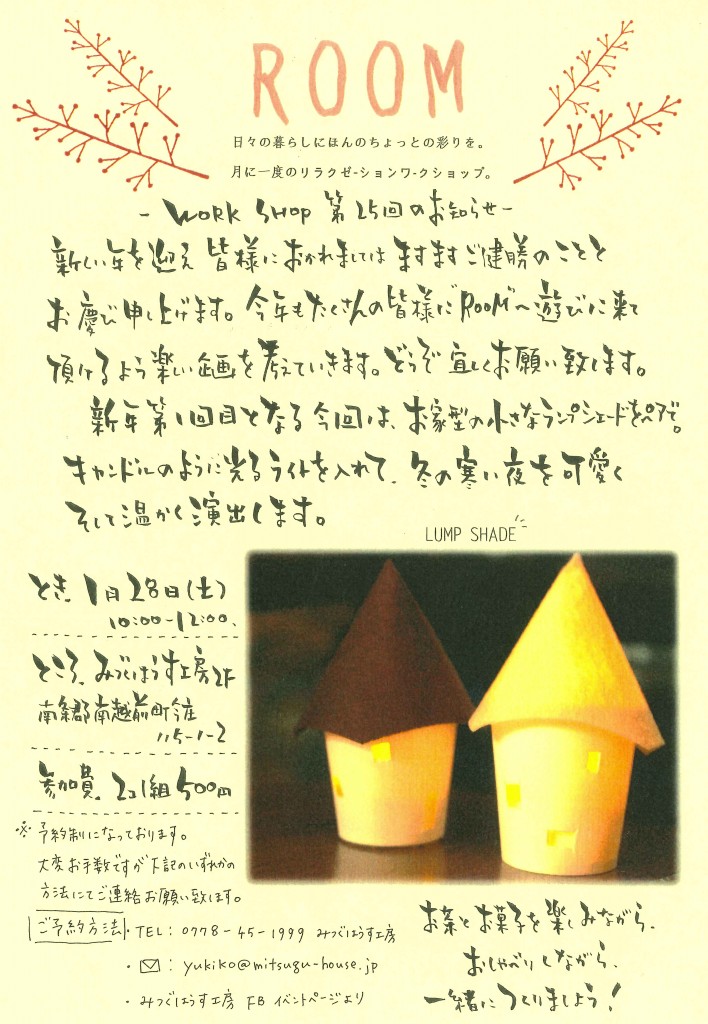 ROOM
日々の暮らしにほんのちょっとの彩りを。
月に一度のリラクゼーションワークショップ。
- WORK SHOP 第25回のお知らせ -
新しい年を迎え 皆様におかれましては ますますご健勝のことと
お慶び申し上げます。今年もたくさんの皆様に"ROOM"へ遊びに来て
頂けるよう楽しい企画を考えていきます。どうぞ宜しくお願い致します。
新年第1回目となる今回は、お家型の小さなランプシェードをペアで。
キャンドルのように光るライトを入れて、冬の寒い夜を可愛く
そして温かく演出します。
LUMP SHADE
とき. 1月28日(土)
10:00-12:00.
ところ. みつぐはうす工房2F
南条郡南越前町今庄
115-1-2
参加費. 2コ1組 500円
※予約制になっております。
大変お手数ですが下記のいずれかの
方法にてご連絡お願い致します。
ご予約方法
・TEL: 0778-45-1999 みつぐはうす工房
・ : yukiko@mitsugu-house.jp
・みつぐはうす工房 FB イベントページより
お茶とお菓子を楽しみながら、
おしゃべりしながら、
一緒につくりましょう!